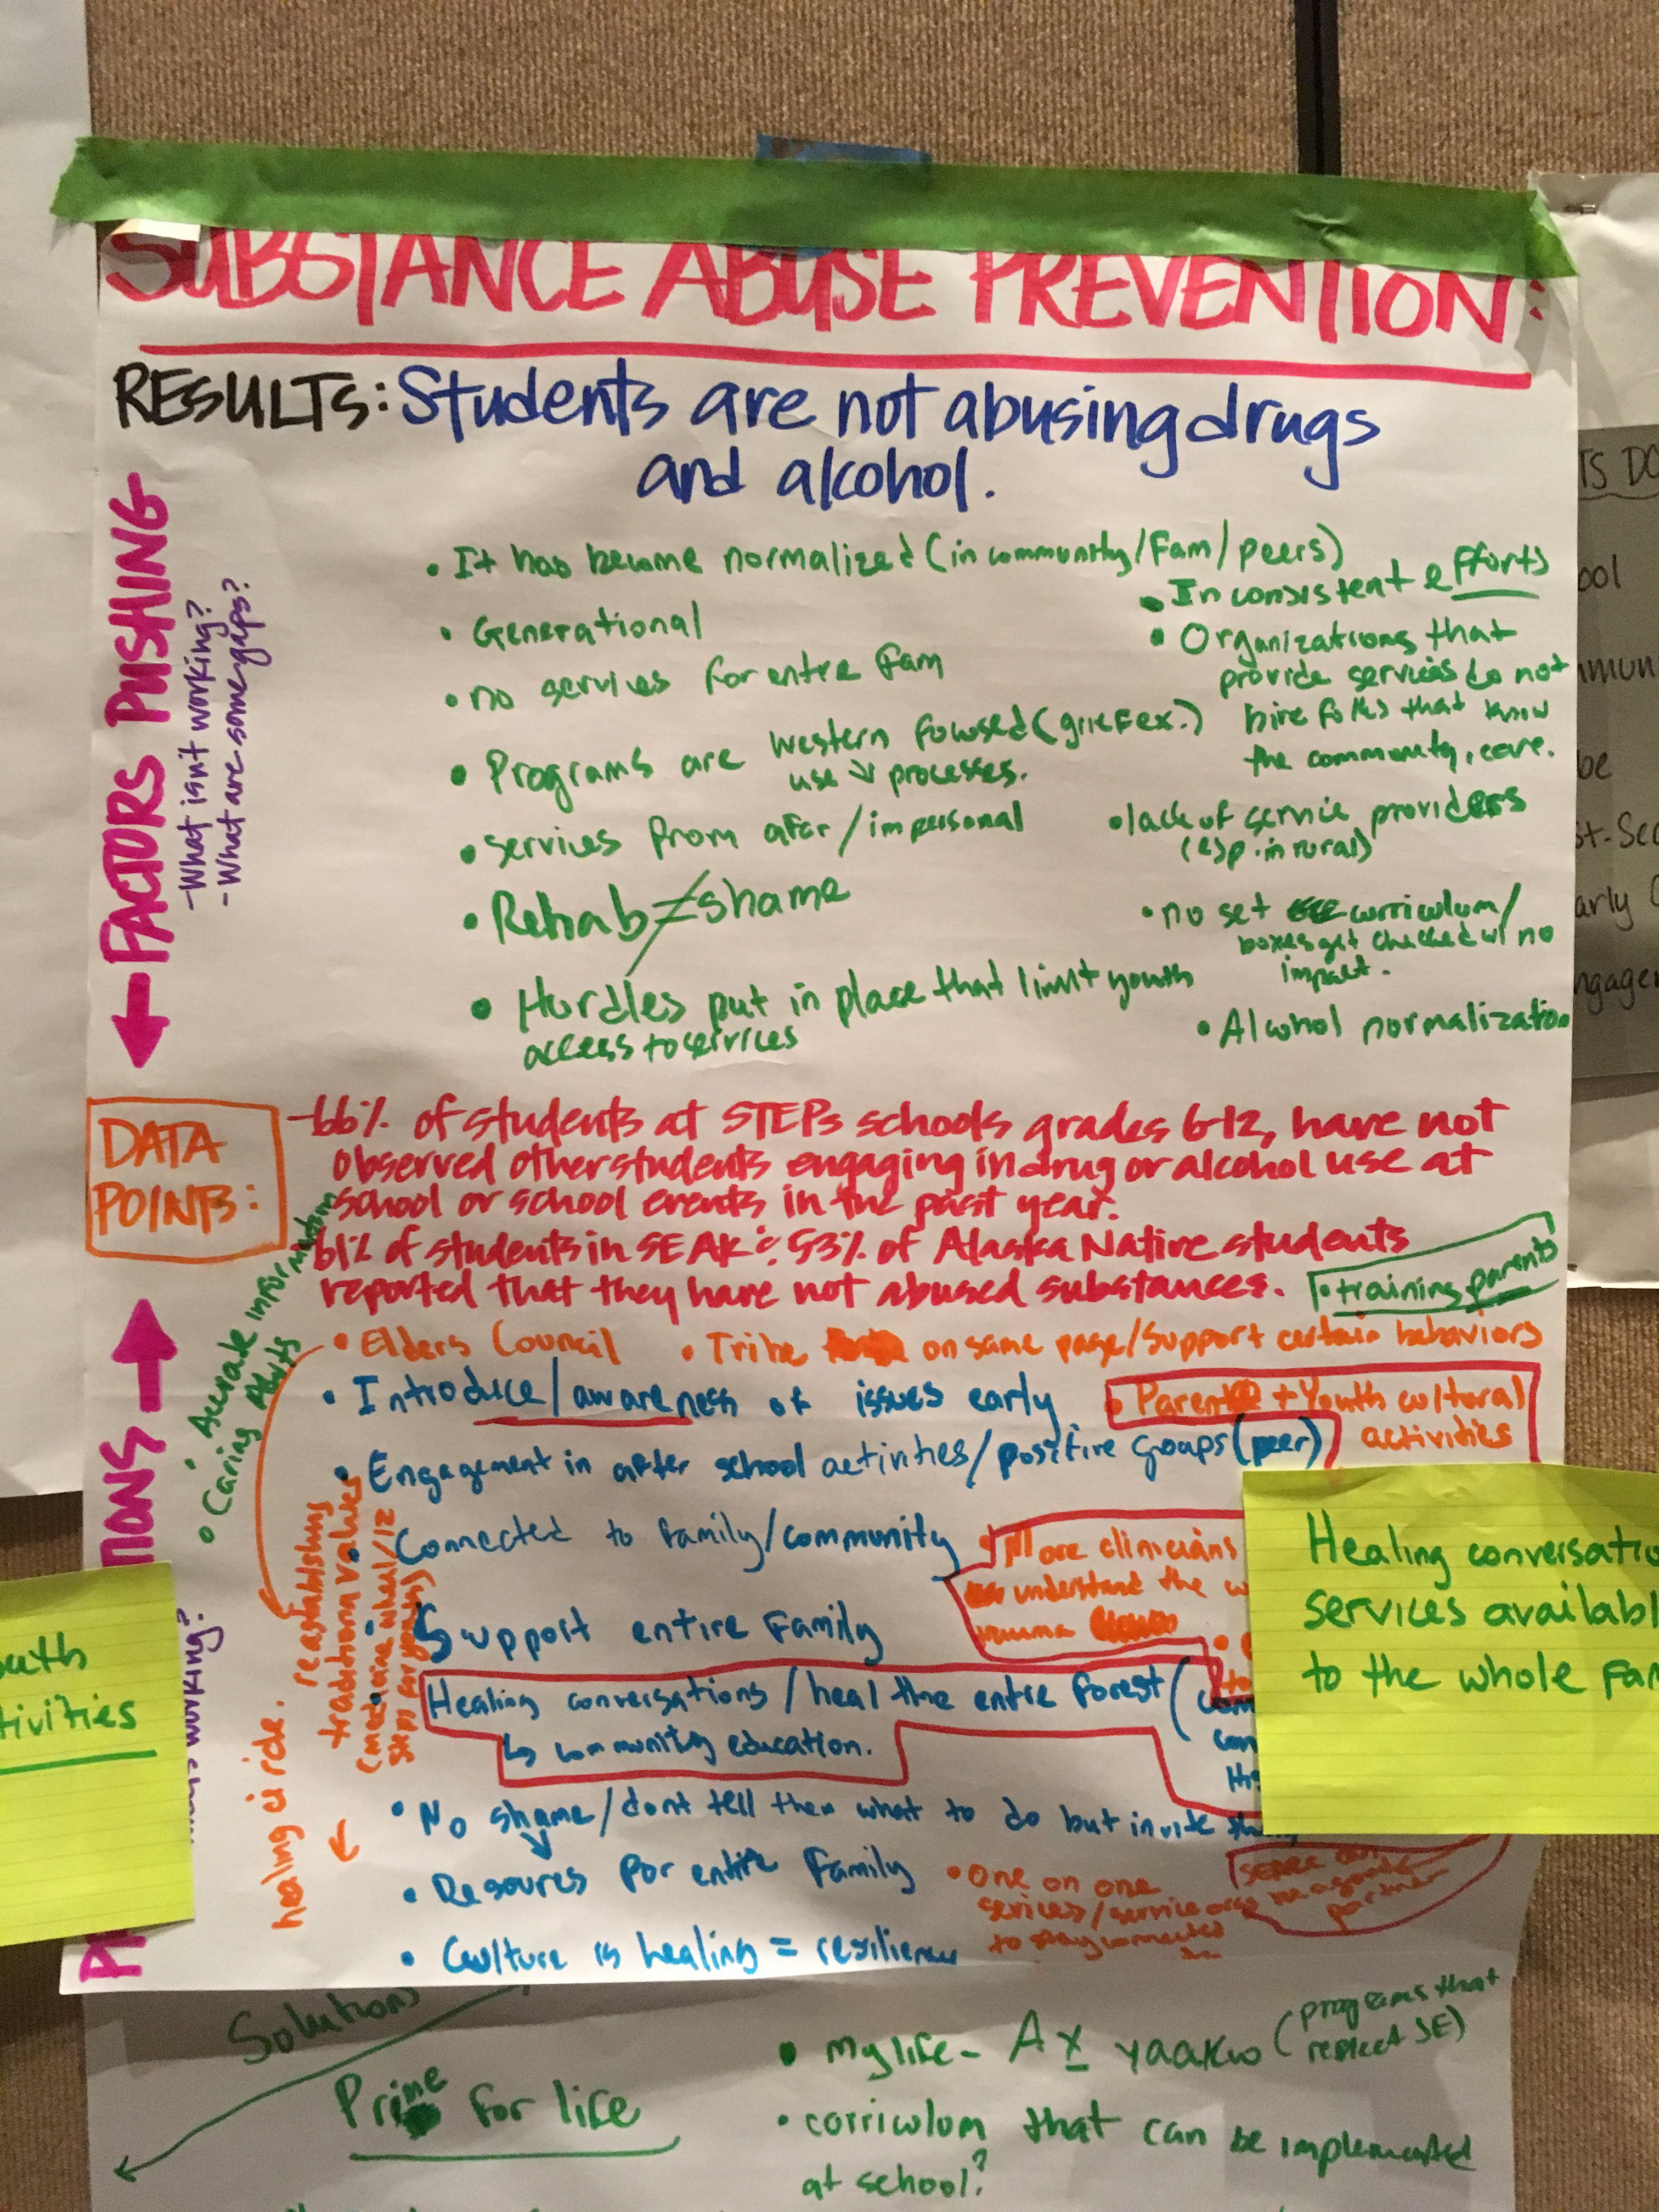 SUBSTANCE ABUSE PREVENTION:
RESULTS: Students are not abusing drugs
and alcohol.
← FACTORS PUSHING
- What isn't working?
- What are some gaps?
• It has become normalized (in community/Fam/peers)
• Generational
• no services for entire fam
• Programs are western focused (grief ex.)
use ↓ processes.
• services from afar/impersonal
• Rehab ≠ shame
• Hurdles put in place that limit youth
access to services
• Inconsistent efforts
• Organizations that
provide services do not
hire folks that know
the community, care.
• lack of service providers
(esp. in rural)
• no set curriculum/
boxes get checked w/ no
impact.
• Alcohol normalization
DATA
POINTS:
-66% of students at STEPs schools grades 6-12, have not
observed other students engaging in drug or alcohol use at
school or school events in the past year.
61% of students in SEAK & 53% of Alaska Native students
reported that they have not abused substances.
• training parents
• Accurate information
• Caring Adults
• Elders Council
• Tribe on same page/support certain behaviors
• Introduce/awareness of issues early
• Parent + Youth cultural
activities
• Engagement in after school activities/positive groups (peer)
• Connected to family/community
• More clinicians
understand the
trauma
• Support entire Family
Healing conversations/heal the entire forest (
↳ community education.
• No shame/dont tell them what to do but invite
• Resources for entire Family
• One on one
services/service orgs
to stay connected
partner
• Culture is healing = resilience
reestablishing
traditional values
(medicine wheel/12
step for youth)
healing circle.
working?
Healing conversatio
services availabl
to the whole Fam
outh
tivities
Solutions
Prime for life
• My life - Ax̲ yaakw (programs that
reflect SE)
• corriculum that can be implemented
at school?
TS DO
ool
mmun
be
st-Sec
arly
ngage